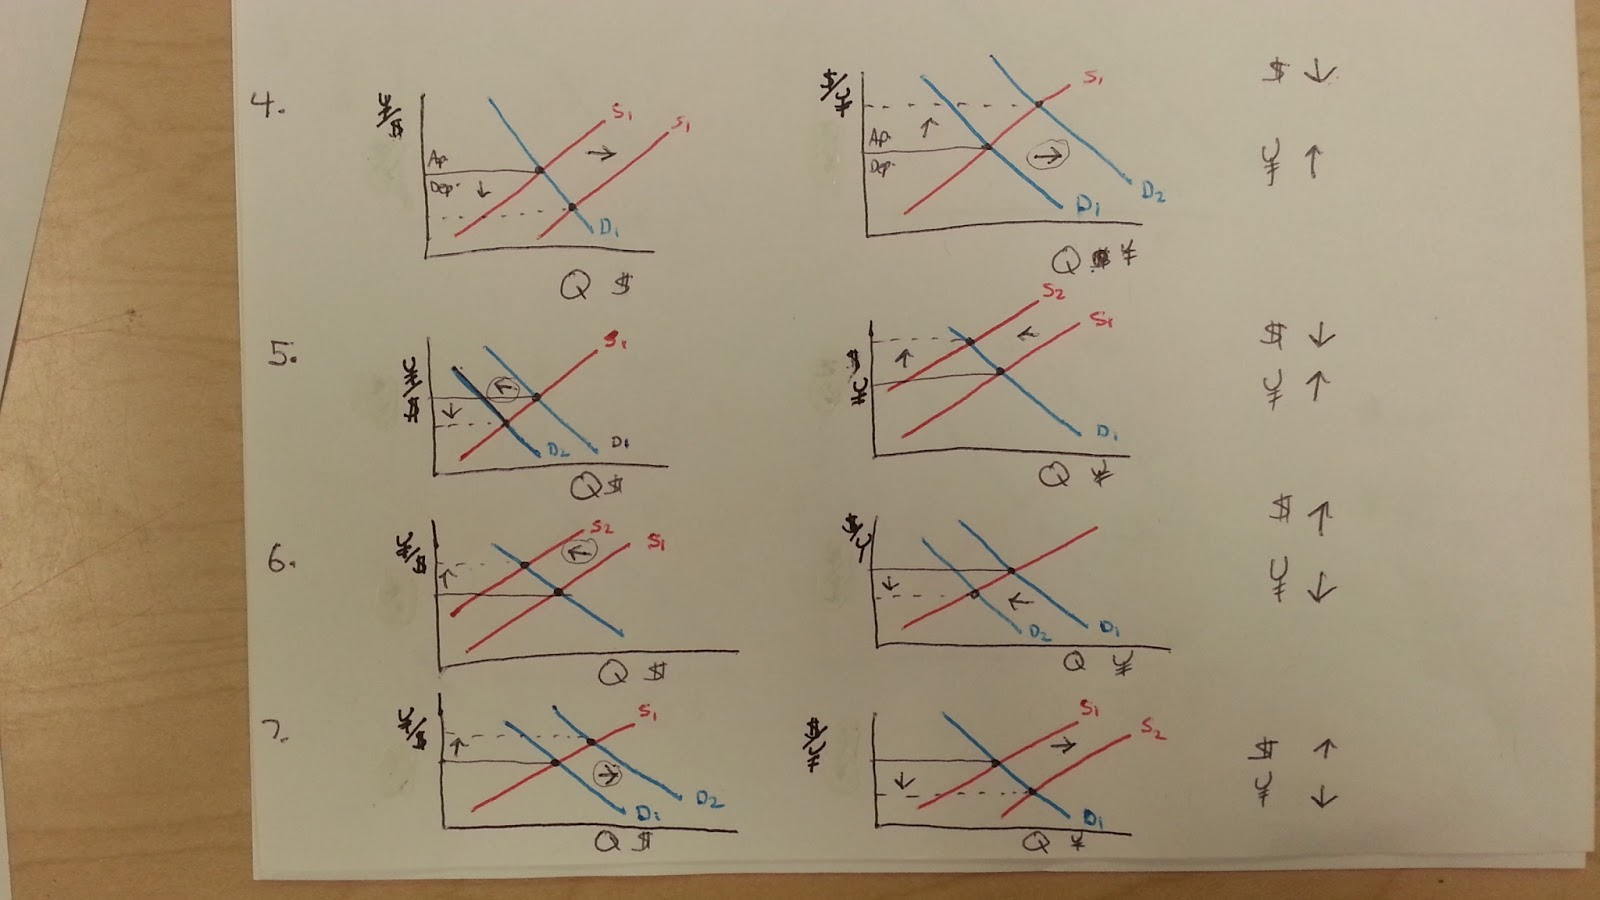 4.
¥/$
S1
S1
→
Ap.
Dep. ↓
D1
Q $
$/¥
S1
↑
Ap.
Dep.
→
D1
D2
Q ¥
$ ↓
¥ ↑
5.
S1
←
↓
D2
D1
Q $
S2
S1
←
↑
D1
Q ¥
$ ↓
¥ ↑
6.
¥/$
S2
S1
←
↑
Q $
$/¥
↓
←
D2
D1
Q ¥
$ ↑
¥ ↓
7.
¥/$
S1
↑
→
D1
D2
Q $
$/¥
S1
S2
→
↓
D1
Q ¥
$ ↑
¥ ↓